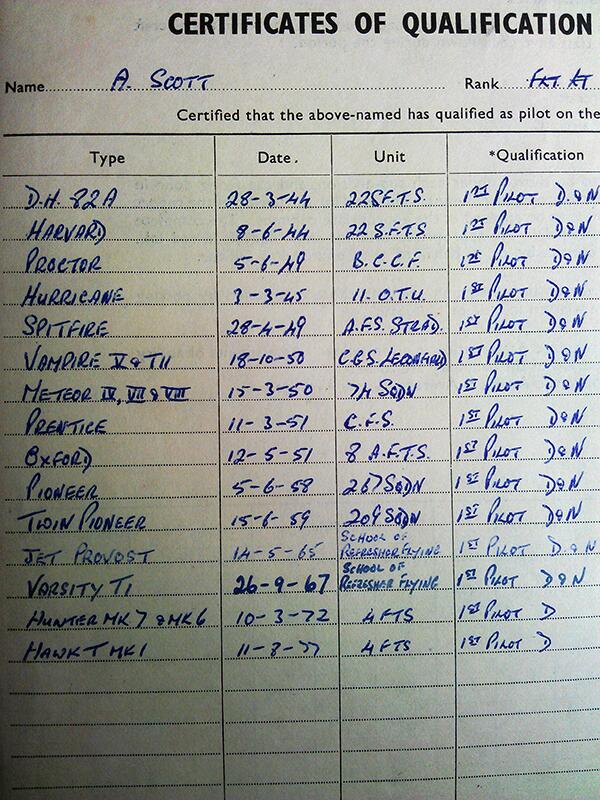 CERTIFICATES OF QUALIFICATION
Name A. SCOTT Rank
Certified that the above-named has qualified as pilot on the
Type Date. Unit *Qualification
D.H. 82A 28-3-44 22SFTS. 1ST PILOT D&N
HARVARD 8-6-44 22 S.F.T.S 1ST PILOT D&N
PROCTOR 5-6-49 B.C.C.F. 1ST PILOT D&N
HURRICANE 3-3-45 11. O.T.U. 1ST PILOT D&N
SPITFIRE 28-4-49 A.F.S. STRAD. 1ST PILOT D&N
VAMPIRE V & TII 18-10-50 1ST PILOT D&N
METEOR IV, VII & VIII 15-3-50 74 SQDN 1ST PILOT D&N
PRENTICE 11-3-51 C.F.S. 1ST PILOT D&N
OXFORD 12-5-51 8 A.F.T.S. 1ST PILOT D&N
PIONEER 5-6-58 267 SQDN 1ST PILOT D&N
TWIN PIONEER 15-6-59 209 SQDN 1ST PILOT D&N
JET PROVOST 14-5-65 SCHOOL OF REFRESHER FLYING 1ST PILOT D&N
VARSITY T1 26-9-67 SCHOOL OF REFRESHER FLYING 1ST PILOT D&N
HUNTER MK 7 & MK 6 10-3-72 4 FTS 1ST PILOT D
HAWK T MK1 4 FTS 1ST PILOT D